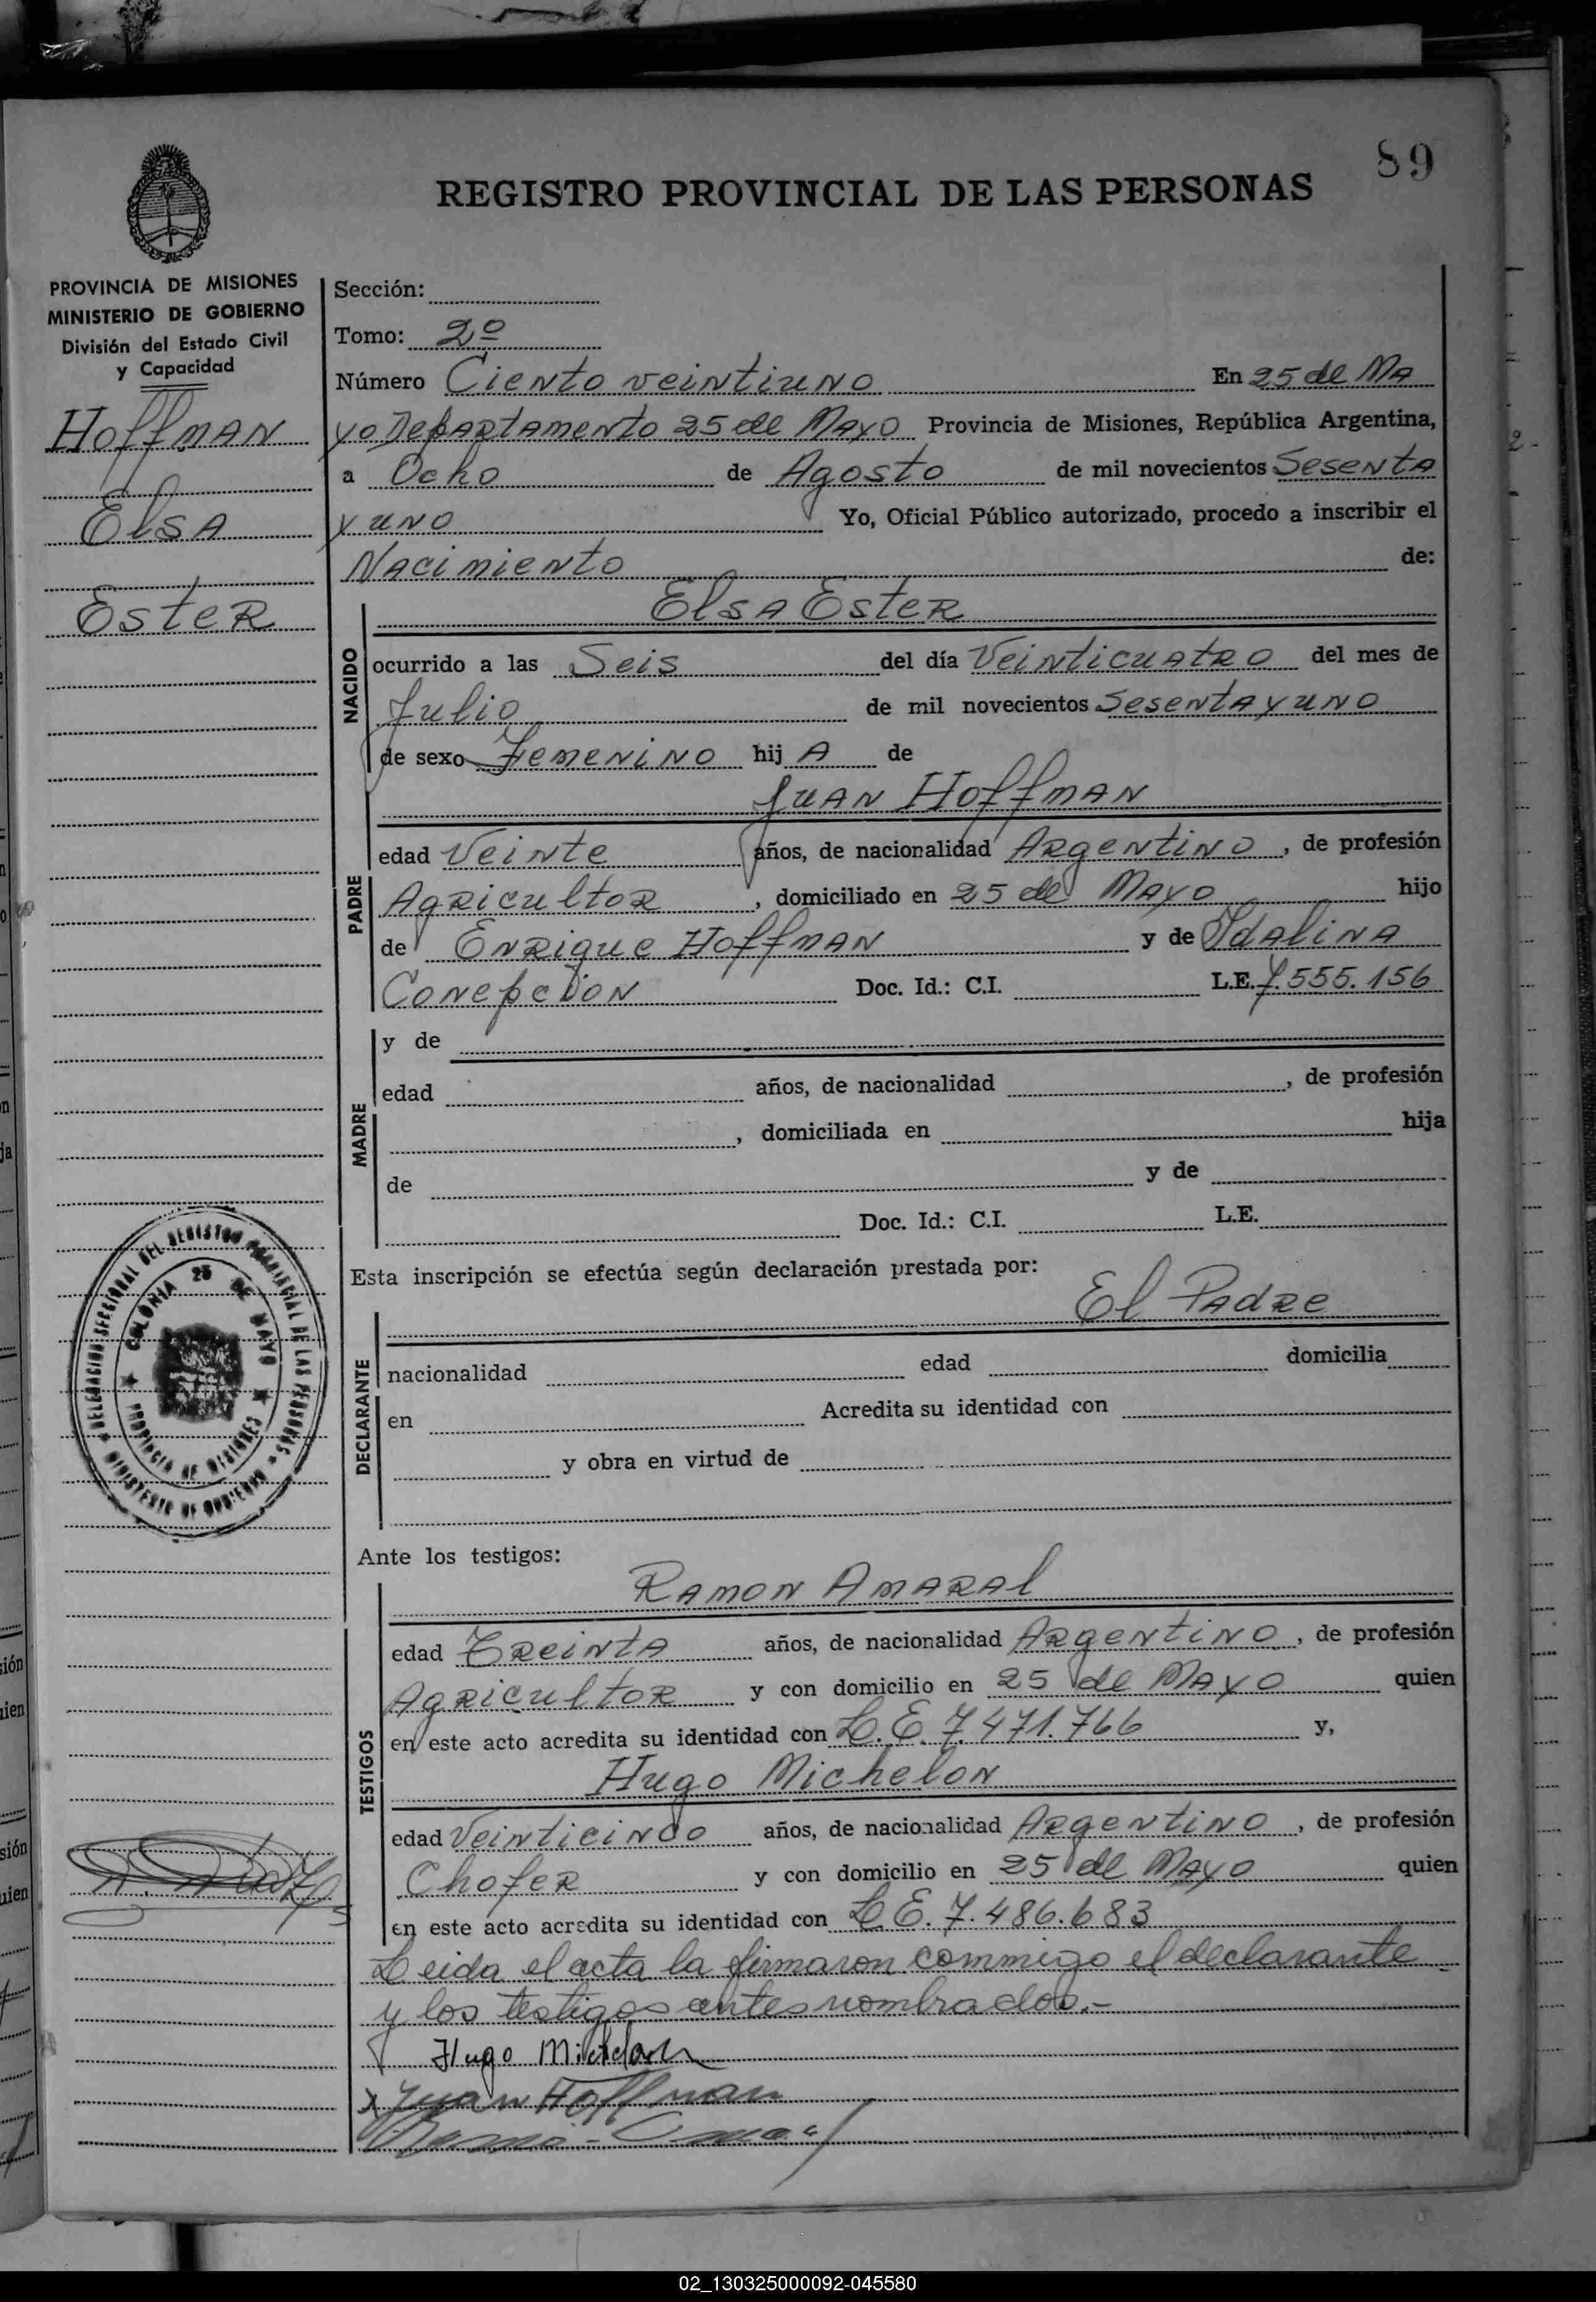 89
REGISTRO PROVINCIAL DE LAS PERSONAS
PROVINCIA DE MISIONES
MINISTERIO DE GOBIERNO
División del Estado Civil
y Capacidad
Hoffman
Elsa
Ester
Sección:
Tomo: 2º
Número Ciento veintiuno En 25 de Ma
yo Departamento 25 de Mayo Provincia de Misiones, República Argentina,
a Ocho de Agosto de mil novecientos Sesenta
y uno Yo, Oficial Público autorizado, procedo a inscribir el
Nacimiento de:
Elsa Ester
NACIDO
ocurrido a las Seis del día Veinticuatro del mes de
Julio de mil novecientos Sesenta y uno
de sexo Femenino hij A de
Juan Hoffman
PADRE
edad Veinte años, de nacionalidad Argentino, de profesión
Agricultor, domiciliado en 25 de Mayo hijo
de Enrique Hoffman y de Idalina
Conepcion Doc. Id.: C.I. L.E. 7.555.156
MADRE
y de
edad años, de nacionalidad , de profesión
, domiciliada en hija
de y de
Doc. Id.: C.I. L.E.
DELEGACION SECCIONAL DEL REGISTRO PROVINCIAL DE LAS PERSONAS
MINISTERIO DE GOBIERNO
COLONIA 25 DE MAYO
PROVINCIA DE MISIONES
Esta inscripción se efectúa según declaración prestada por:
El Padre
DECLARANTE
nacionalidad edad domicilia
en Acredita su identidad con
y obra en virtud de
Ante los testigos:
Ramon Amaral
TESTIGOS
edad Treinta años, de nacionalidad Argentino, de profesión
Agricultor y con domicilio en 25 de Mayo quien
en este acto acredita su identidad con L.E. 7.471.766 y,
Hugo Michelon
edad Veinticinco años, de nacionalidad Argentino, de profesión
Chofer y con domicilio en 25 de Mayo quien
en este acto acredita su identidad con L.E. 7.486.683
Leida el acta la firmaron commigo el declarante
y los testigos antes nombrados.-
Hugo Michelon
x Juan Hoffman
02_130325000092-045580